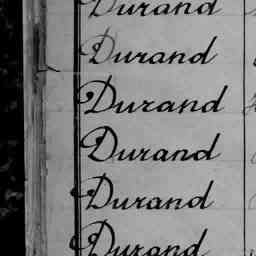 Durand
Durand
Durand
Durand
Durand
Durand